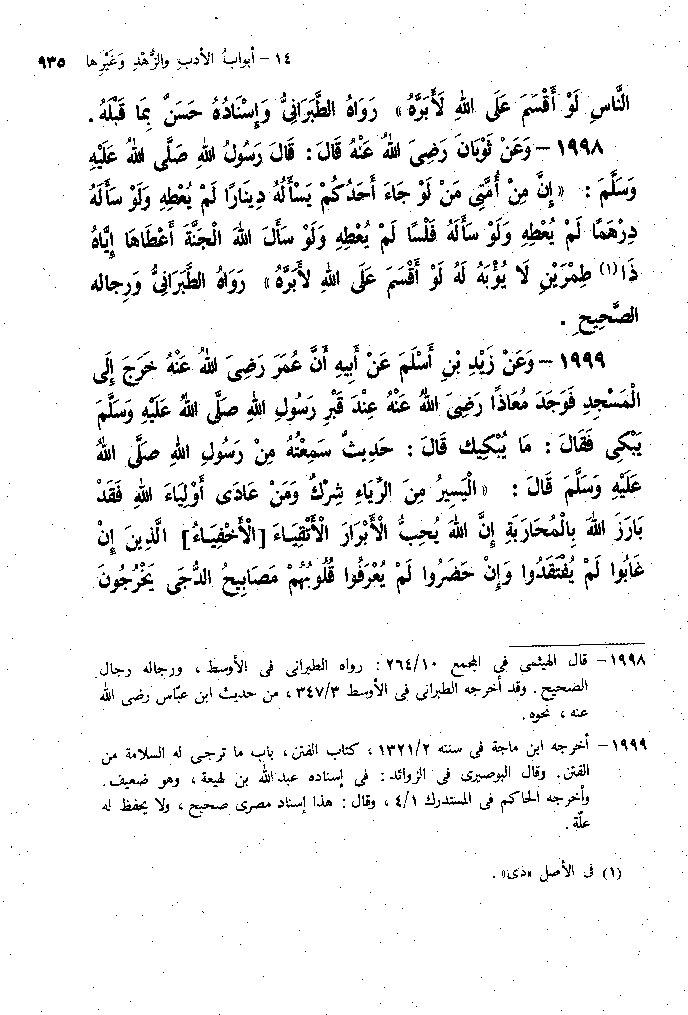 ١٤ – أبوابُ الأدبِ والزُّهْدِ وَغَيْرِها ٩٣٥
النَّاسِ لَوْ أَقْسَمَ عَلَى اللهِ لَأَبَرَّهُ» رَوَاهُ الطَّبَرَانِىُّ وَإِسْنَادُهُ حَسَنٌ بِمَا قَبْلَهُ .
١٩٩٨ – وَعَنْ ثَوْبَانَ رَضِىَ اللهُ عَنْهُ قَالَ : قَالَ رَسُولُ اللهِ صَلَّى اللهُ عَلَيْهِ
وَسَلَّمَ : «إِنَّ مِنْ أُمَّتِى مَنْ لَوْ جَاءَ أَحَدَكُمْ يَسْأَلُهُ دِينَارًا لَمْ يُعْطِهِ وَلَوْ سَأَلَهُ
دِرْهَمًا لَمْ يُعْطِهِ وَلَوْ سَأَلَهُ فَلْسًا لَمْ يُعْطِهِ وَلَوْ سَأَلَ اللهَ الْجَنَّةَ أَعْطَاهَا إِيَّاهُ
ذَا(١) طِمْرَيْنِ لَا يُؤْبَهُ لَهُ لَوْ أَقْسَمَ عَلَى اللهِ لأَبَرَّهُ» رَوَاهُ الطَّبَرَانِىُّ وَرِجاله
الصَّحِيحِ .
١٩٩٩ – وَعَنْ زَيْدِ بْنِ أَسْلَمَ عَنْ أَبِيهِ أَنَّ عُمَرَ رَضِىَ اللهُ عَنْهُ خَرَجَ إِلَى
الْمَسْجِدِ فَوَجَدَ مُعَاذًا رَضِىَ اللهُ عَنْهُ عِنْدَ قَبْرِ رَسُولِ اللهِ صَلَّى اللهُ عَلَيْهِ وَسَلَّمَ
يَبْكِى فَقَالَ : مَا يُبْكِيك قَالَ : حَدِيثٌ سَمِعْتُهُ مِنْ رَسُولِ اللهِ صَلَّى اللهُ
عَلَيْهِ وَسَلَّمَ قَالَ : «الْيَسِيرُ مِنَ الرِّيَاءِ شِرْكٌ وَمَنْ عَادَى أَوْلِيَاءَ اللهِ فَقَدْ
بَارَزَ اللهَ بِالْمُحَارَبَةِ إِنَّ اللهَ يُحِبُّ الْأَبْرَارَ الْأَتْقِيَاءَ [الْأَخْفِيَاءُ] الَّذِينَ إِنْ
غَابُوا لَمْ يُفْتَقَدُوا وَإِنْ حَضَرُوا لَمْ يُعْرَفُوا قُلُوبُهُمْ مَصَابِيحُ الدُّجَى يَخْرُجُونَ
١٩٩٨ – قال الهيثمى فى المجمع ٢٦٤/١٠ : رواه الطبرانى فى الأوسط ، ورجاله رجال
الصحيح . وقد أخرجه الطبرانى فى الأوسط ٣٤٧/٣ ، من حديث ابن عبّاس رضى الله
عنه ، نحوه .
١٩٩٩ – أخرجه ابن ماجة فى سننه ١٣٢١/٢ ، كتاب الفتن ، باب ما ترجى له السلامة من
الفتن . وقال البوصيرى فى الزوائد : فى إسناده عبدالله بن لهيعة ، وهو ضعيف .
وأخرجه الحاكم فى المستدرك ٤/١ ، وقال : هذا إسناد مصرى صحيح ، ولا يحفظ له
علّة .
(١) فى الأصل «ذى» .